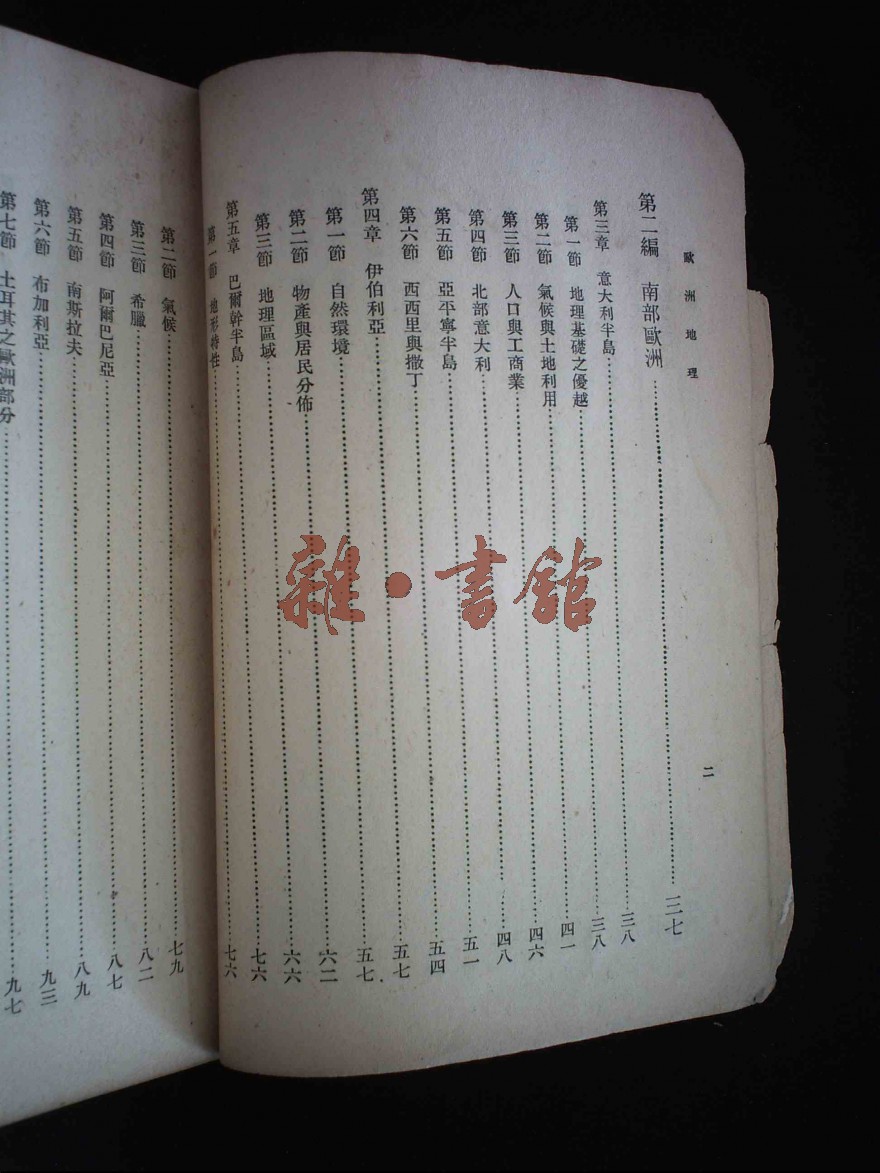 歐洲地理 二
第二編 南部歐洲……三七
第三章 意大利半島……三八
第一節 地理基礎之優越……三八
第二節 氣候與土地利用……四一
第三節 人口與工商業……四六
第四節 北部意大利……四八
第五節 亞平寧半島……五一
第六節 西西里與撒丁……五四
第四章 伊伯利亞……五七
第一節 自然環境……五七
第二節 物產與居民分佈……六二
第三節 地理區域……六六
第五章 巴爾幹半島……七六
第一節 地形特性……七六
第二節 氣候……七九
第三節 希臘……八二
第四節 阿爾巴尼亞……八七
第五節 南斯拉夫……八九
第六節 布加利亞……九三
第七節 土耳其之歐洲部分……九七
雜·書館